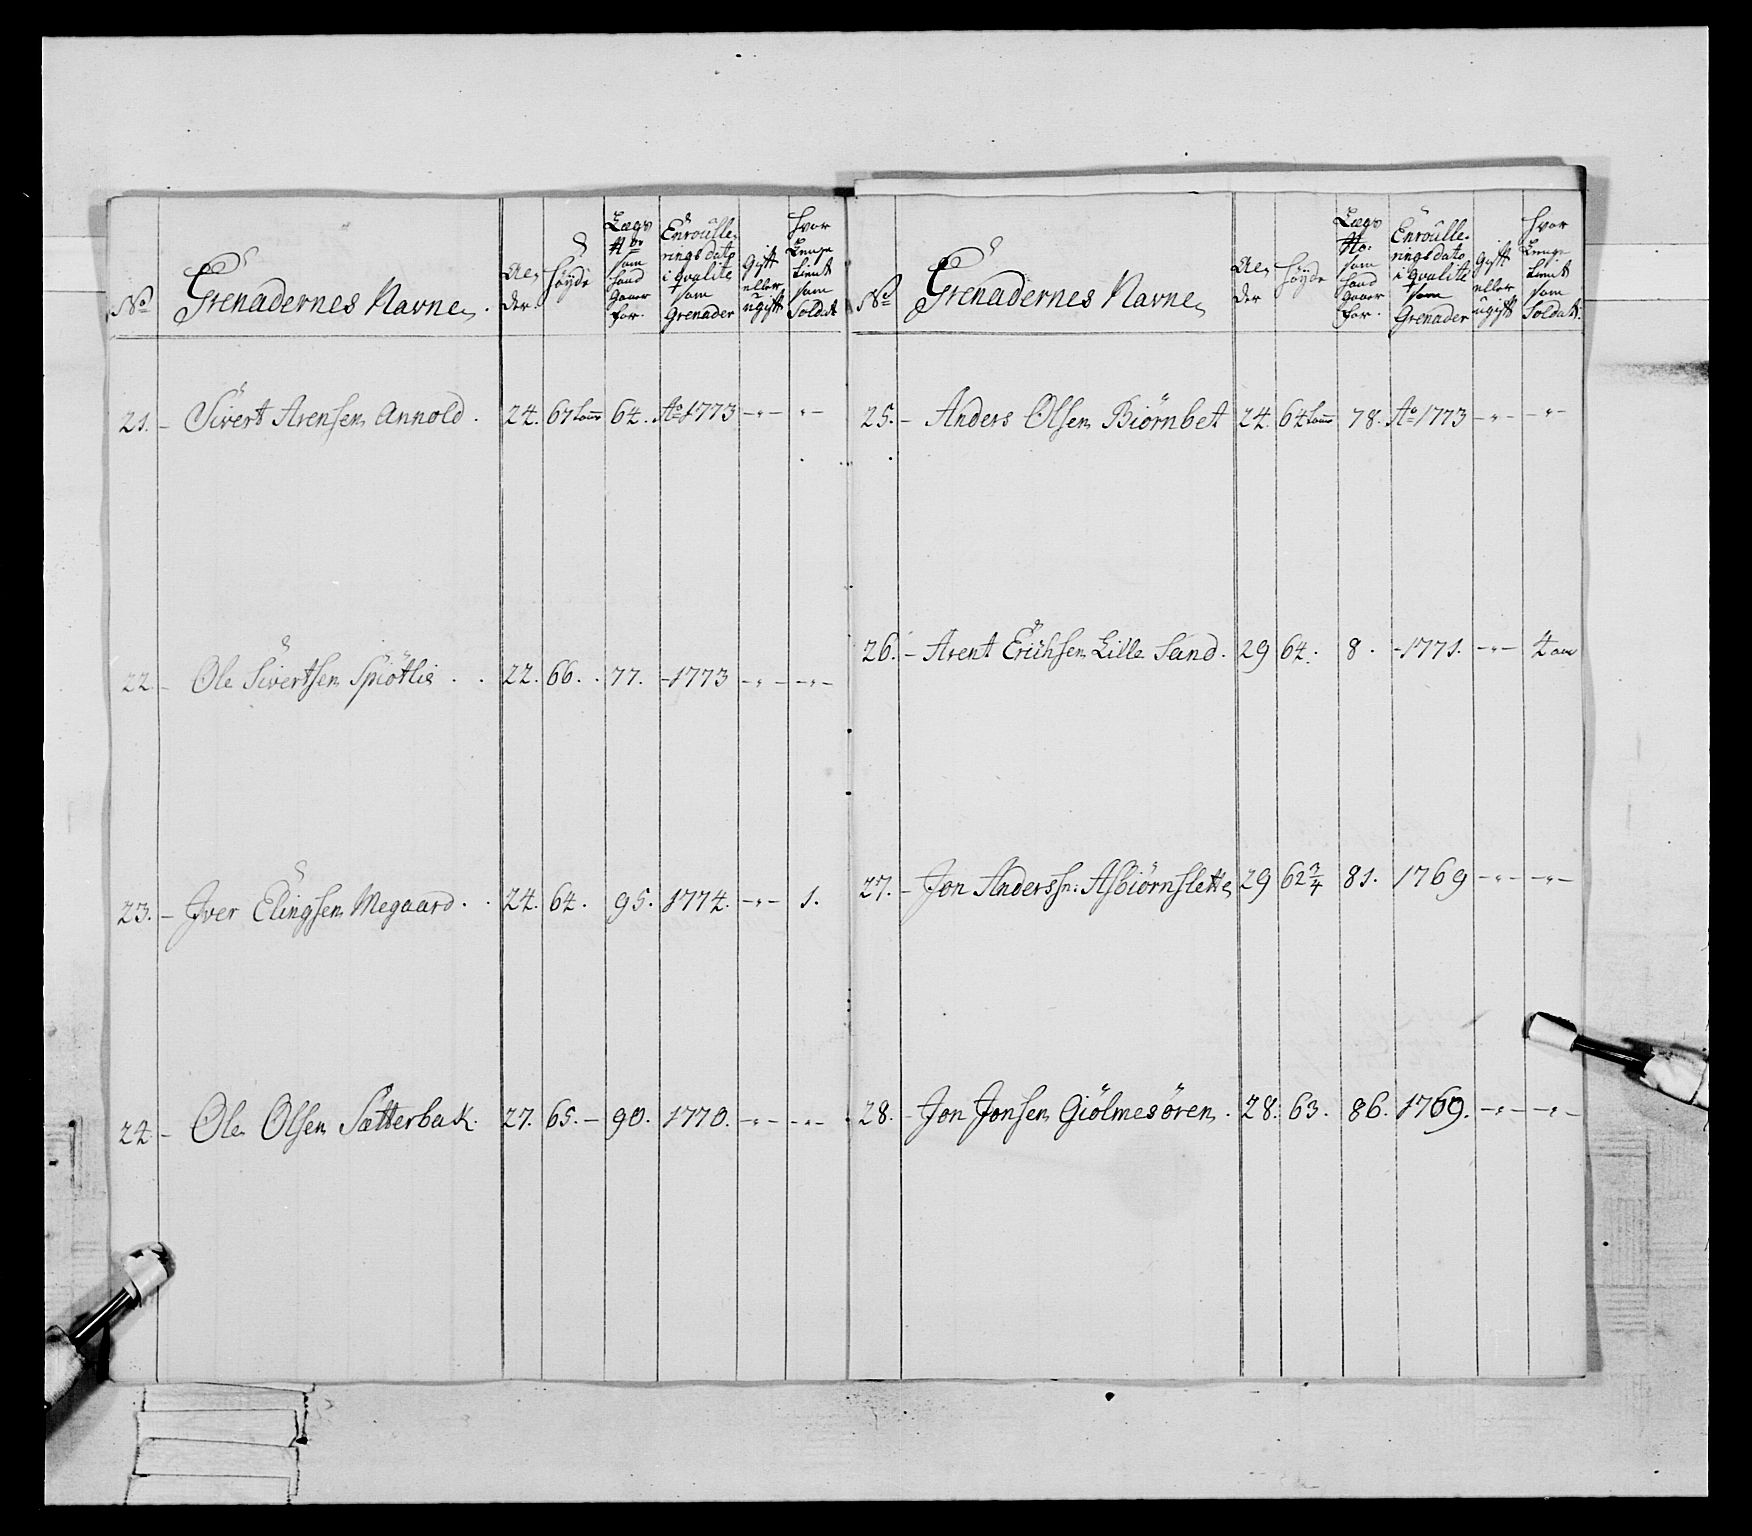 No
Grenadernes Navne.
Al,
der.
Höyde
Lægs
No
som
hand
gaaer
for.
Enroulle,
rings dato
i qvalite
som
Grenader
Gift
eller
ugift
hvor
Lenge
tient
som
Soldat
21. – Sivert Arensen Annold. 24. 67 Tom 64. Ao 1773 –"– "–
22 – Ole Sivertsen Spiötlie . . 22. 66. . 77. – 1773 –"– –"–
23. – Iver Elingsen Megaard. . 24. 64. 95. 1774. –"– 1.
24 – Ole Olsen Sætterbak. 27. 65. – 90. 1770. –"– –"–
No
Grenadernes Navne
Al,
der
Höyde
Lægs
No:
som
hand
gaaer
for.
Enroulle,
rings dato
i qvalite
som
Grenader
Gift
eller
ugift
hvor
Lenge
tient
som
Soldat.
25. – Anders Olsen Biörnbet 24. 64 Tom 78. Ao 1773 –"– –"–
26. – Arent Erichsen Lille Sand. 29 64. 8. – 1771. –"– 4 aar
27. – Jon Anderssn: Asbiörnslette 29 62 3/4 81. 1769 –"– –"–
28. – Jon Jonsen Giölmesören. 28. 63. 86. 1769. –"– –"–